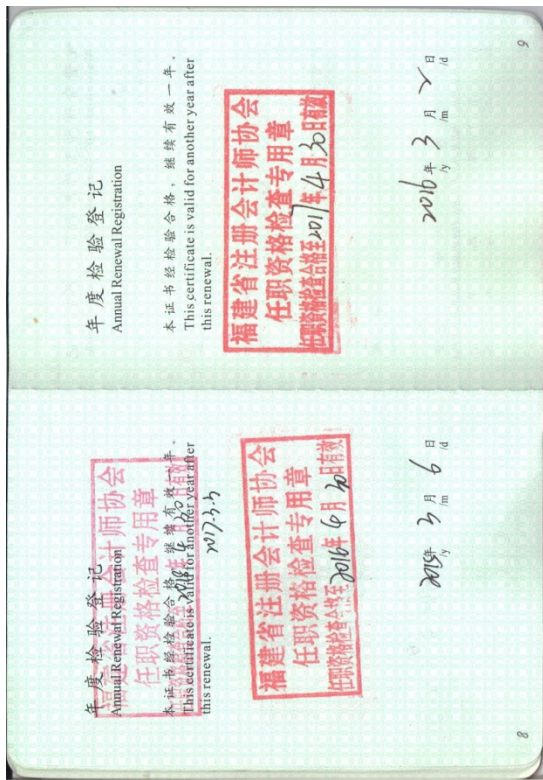 年度检验登记
Annual Renewal Registration
本证书经检验合格，继续有效一年。
This certificate is valid for another year after
this renewal.
福建省注册会计师协会
任职资格检查专用章
2017-3-3
福建省注册会计师协会
任职资格检查专用章
任职资格检查合格至2016年4月30日有效
2015年 3月 6日
/y /m /d
8
年度检验登记
Annual Renewal Registration
本证书经检验合格，继续有效一年。
This certificate is valid for another year after
this renewal.
福建省注册会计师协会
任职资格检查专用章
任职资格检查合格至2017年4月30日有效
2016年 3月 2日
/y /m /d
9